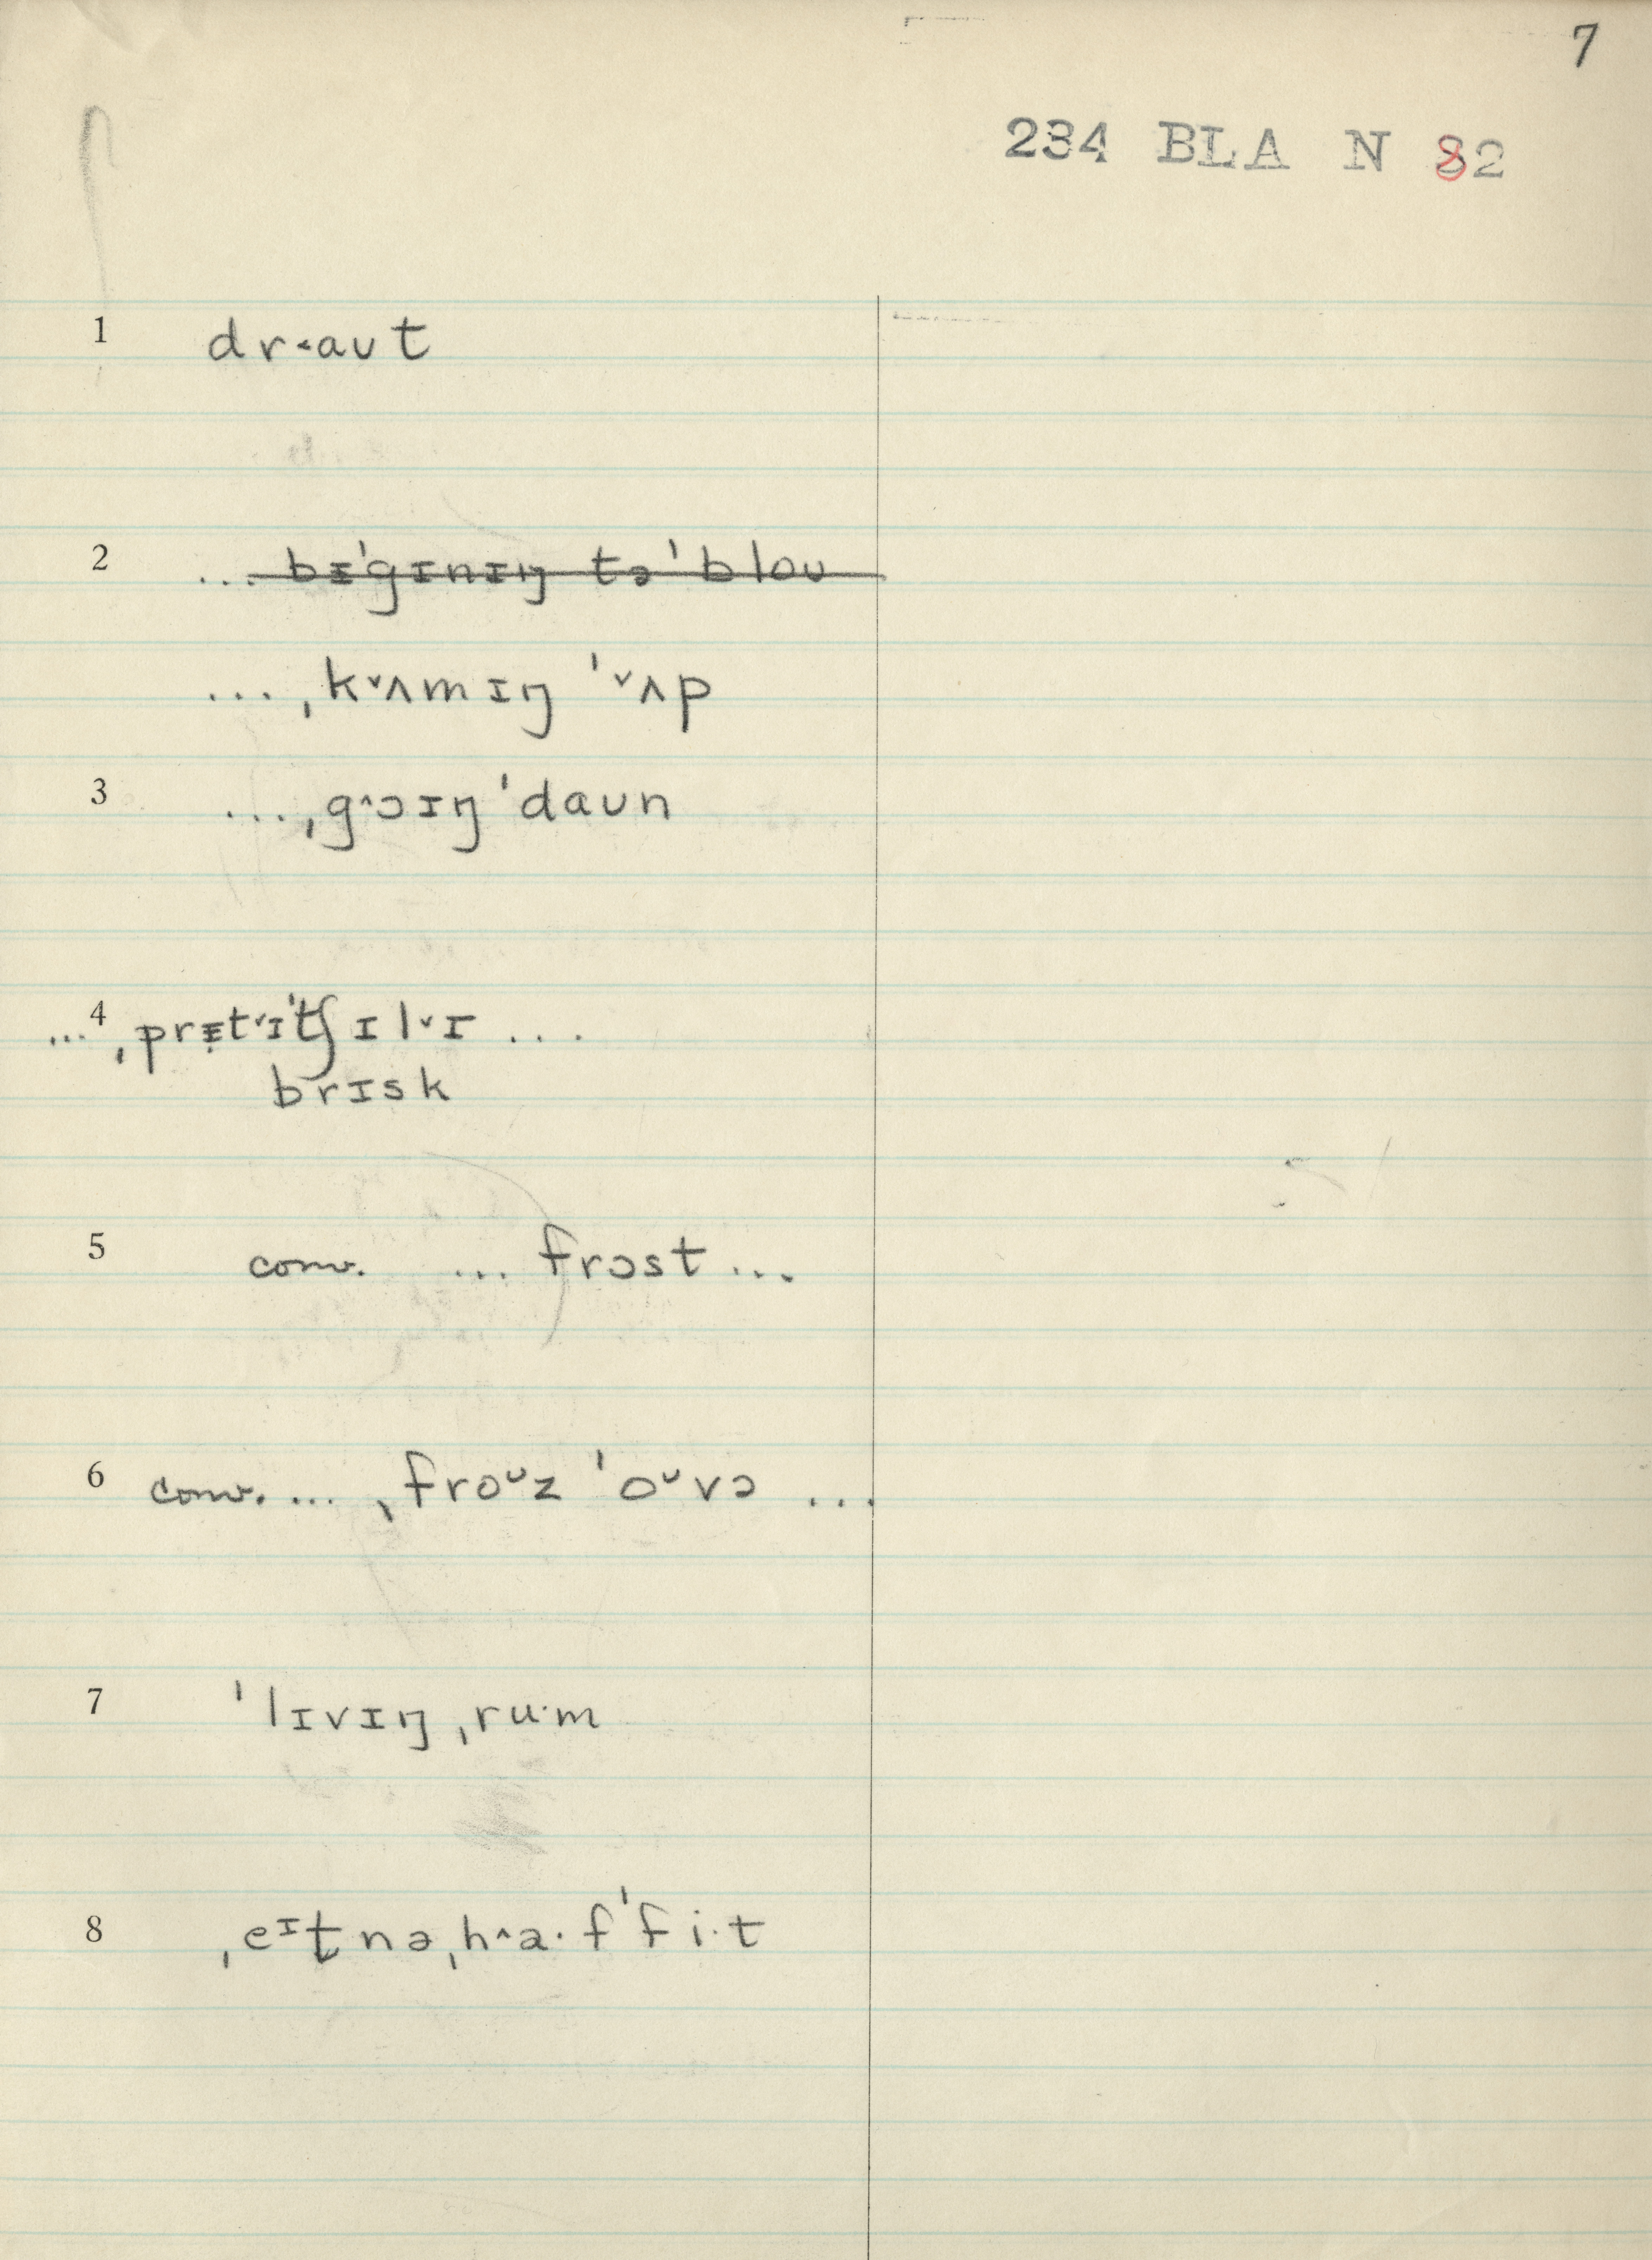 7
234 BLA N 82
1 dr˂aʊt
2 ... bɪˈgɪnɪŋ təˈbloʊ
... ˌkˇʌmɪŋ ˈˇʌp
3 ... ˌg^ɔɪŋ ˈdaʊn
4 ... ˌprɪ̣tˇɪˈtʃɪlˇɪ ...
brɪsk
5 conv. ... frɔst ...
6 conv. ... ˌfroᶷz ˈoᶷvə ...
7 ˈlɪvɪŋ ˌru·m
8 ˌeᶦt̪nəˌh^a·fˈfi·t